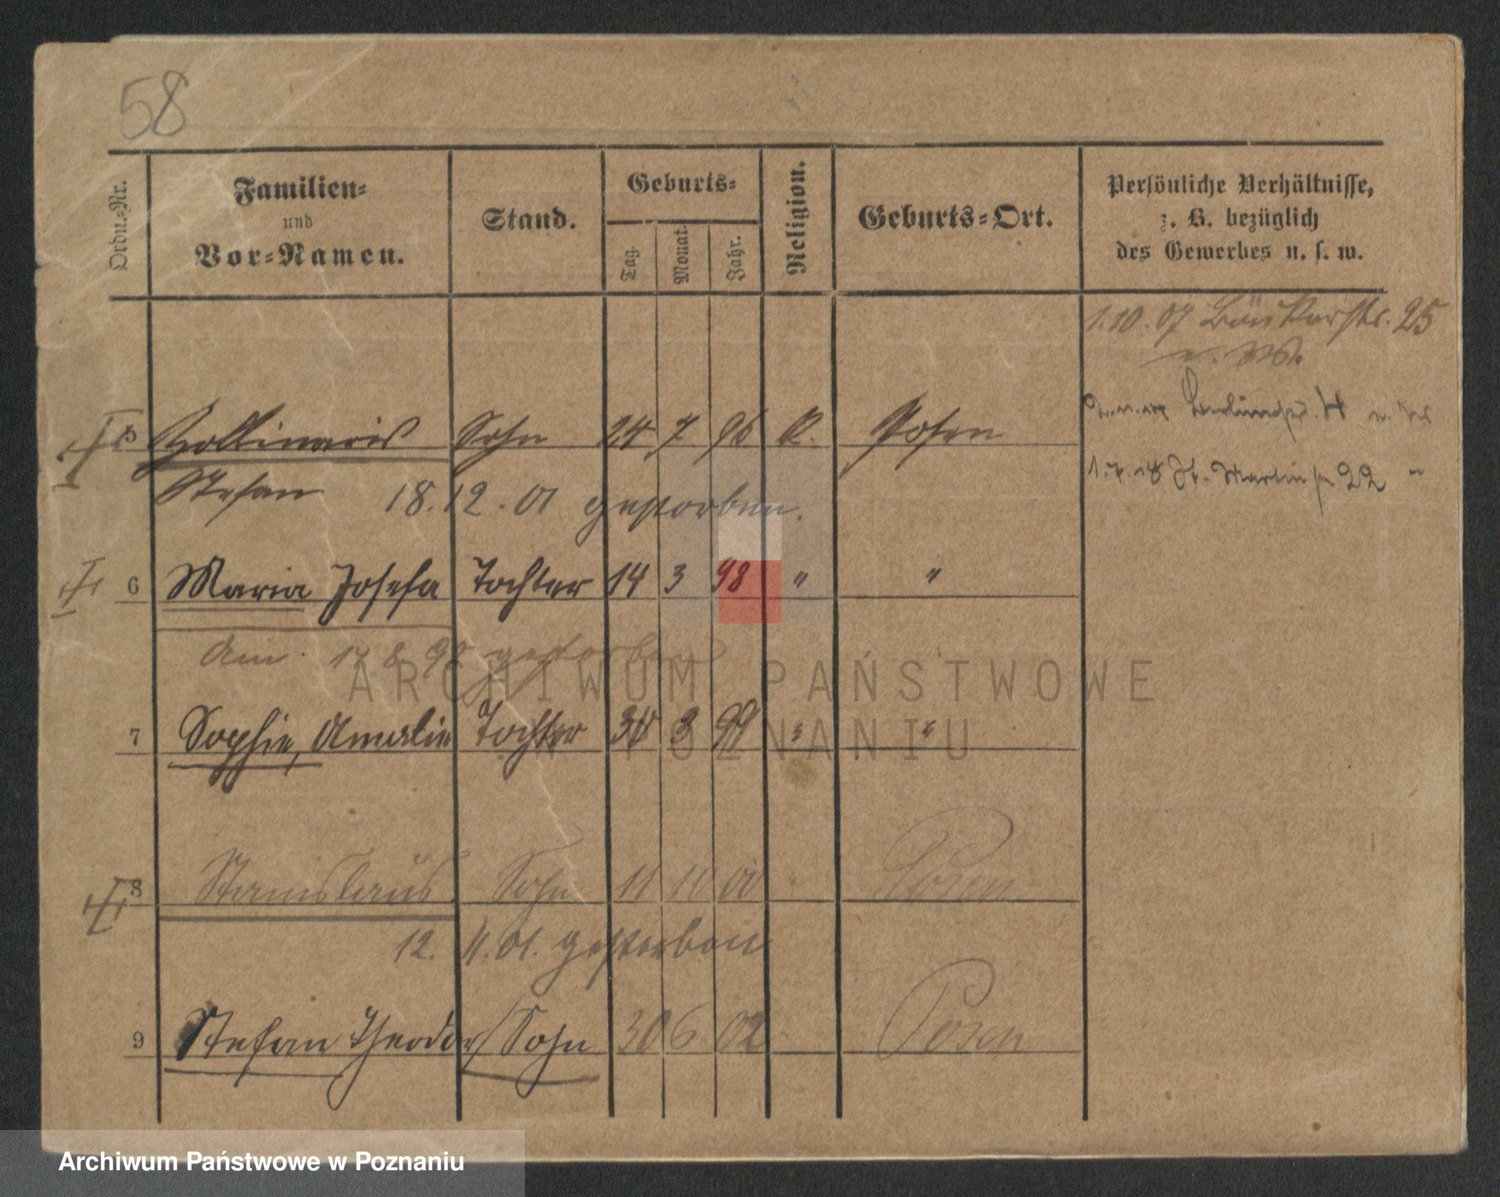 58
Ordn.-Nr.
Familien-
und
Vor-Namen.
Stand.
Geburts-
Tag.
Monat.
Jahr.
Religion.
Geburts-Ort.
Persönliche Verhältnisse,
z. B. bezüglich
des Gewerbes u. s. w.
1.10.07 25
5 Sohn 24 7 96 K. Posen
Stefan 18.12.01 gestorben.
1.4.18 St. Martinstr 22 "
6 Maria Josefa Tochter 14 3 98 " "
Am 17 8 98 gestorben
7 Sophie, Amalie Tochter 30 3 99 " "
8 Stanislaus Sohn 11 10 00 " Posen
12. 11. 01. gestorben
9 Stefan Theodor Sohn 30 6 02 Posen
ARCHIWUM PAŃSTWOWE
W POZNANIU
Archiwum Państwowe w Poznaniu